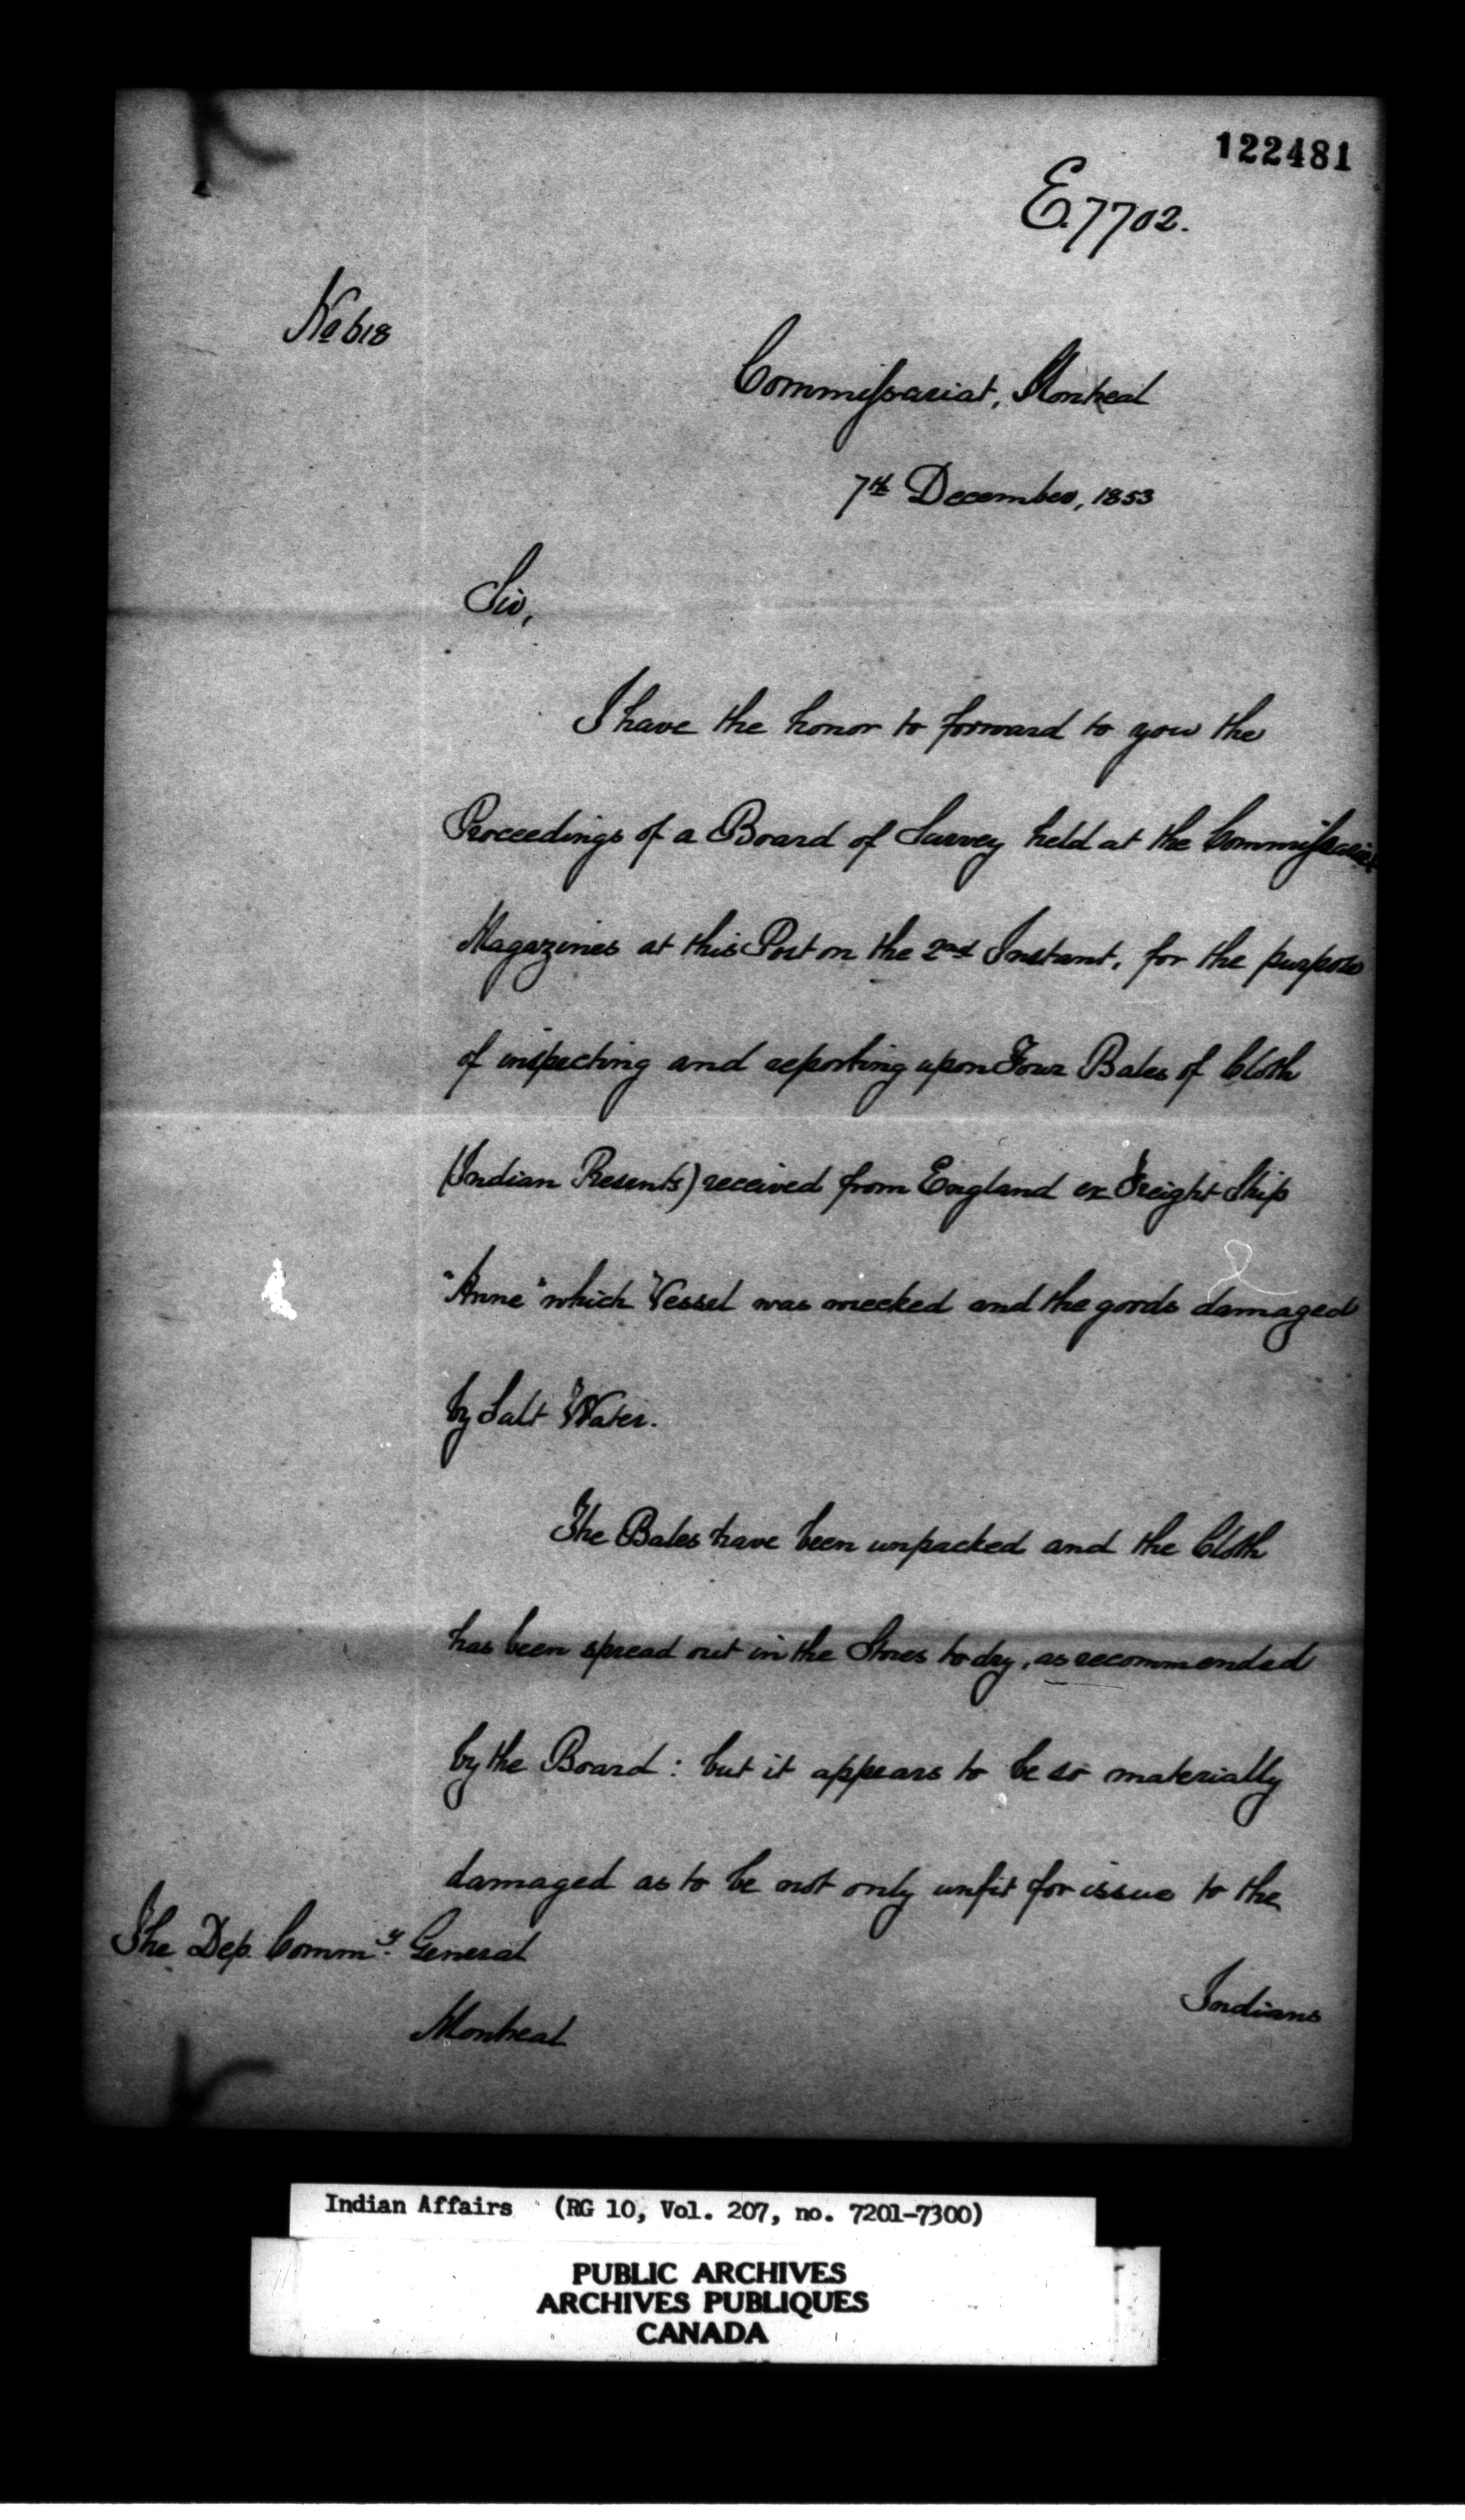 122481
E.7702.
No 618
Commissariat, Montreal
7th December, 1853
Sir,
I have the honor to forward to you the
Proceedings of a Board of Survey held at the Commissariat
Magazines at this Post on the 2nd Instant, for the purpose
of inspecting and reporting upon Four Bales of Cloth
(Indian Presents) received from England ex Freight Ship
"Anne" which Vessel was wrecked and the goods damaged
by Salt Water.
The Bales have been unpacked and the Cloth
has been spread out in the Stores to dry, as recommended
by the Board: but it appears to be so materially
damaged as to be not only unfit for issue to the
Indians
The Dep. Commy. General
Montreal
Indian Affairs (RG 10, Vol. 207, no. 7201-7300)
PUBLIC ARCHIVES
ARCHIVES PUBLIQUES
CANADA